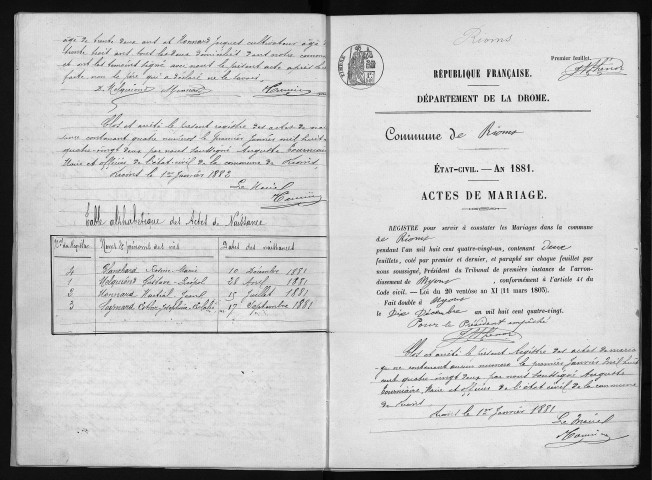 âgé de trente deux ans et Monnard Jacques cultivateur âgé de
trente huit ans, tous les deux domiciliés dans notre commune
et ont les témoins signé avec nous le présent acte après lecture
faite non le père qui a déclaré ne le savoir.
Clos et arrêté le présent registre des actes de nais-
sance contenant quatre numéros le premier Janvier mil huit cent
quatre-vingt-deux par nous soussigné Auguste
Maire et officier de l'état-civil de la commune de Rioms
Rioms le 1er Janvier 1882
Le Maire
Table alphabétique des Actes de Naissance
Nos du Registre Noms & prénoms des nés Dates des naissances
4 Blanchard Marie 10 Décembre 1881
1 Gustave 28 Avril 1881
2 Monnard Martial 15 Juillet 1881
3 17 Septembre 1881
Rioms
Premier feuillet.
TIMBRE
RÉPUBLIQUE FRANÇAISE.
DÉPARTEMENT DE LA DROME.
Commune de Rioms
ÉTAT-CIVIL. — AN 1881.
ACTES DE MARIAGE.
REGISTRE pour servir à constater les Mariages dans la commune
de Rioms
pendant l'an mil huit cent quatre-vingt-un, contenant deux
feuillets, coté par premier et dernier, et paraphé sur chaque feuillet par
nous soussigné, Président du Tribunal de première instance de l'arron-
dissement de Nyons, conformément à l'article 41 du
Code civil. — (Loi du 20 ventôse an XI (11 mars 1803).
Fait double à Nyons
le Dix Décembre an mil huit cent quatre-vingt.
Pour le Président empêché
Clos et arrêté le présent Registre des actes de maria-
ge ne contenant aucun numéro le premier Janvier mil huit
cent quatre-vingt deux par nous soussigné Auguste
Maire et officier de l'état civil de la commune
de Rioms
Rioms le 1er Janvier 1881
Le Maire